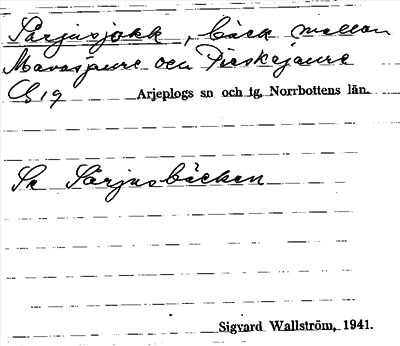 Sarjusjokk, bäck mellan
Mavasjaure och Pieskejaure
Cb 19 Arjeplogs sn och tg, Norrbottens län.
Se Sarjusbäcken
Sigvard Wallström, 1941.